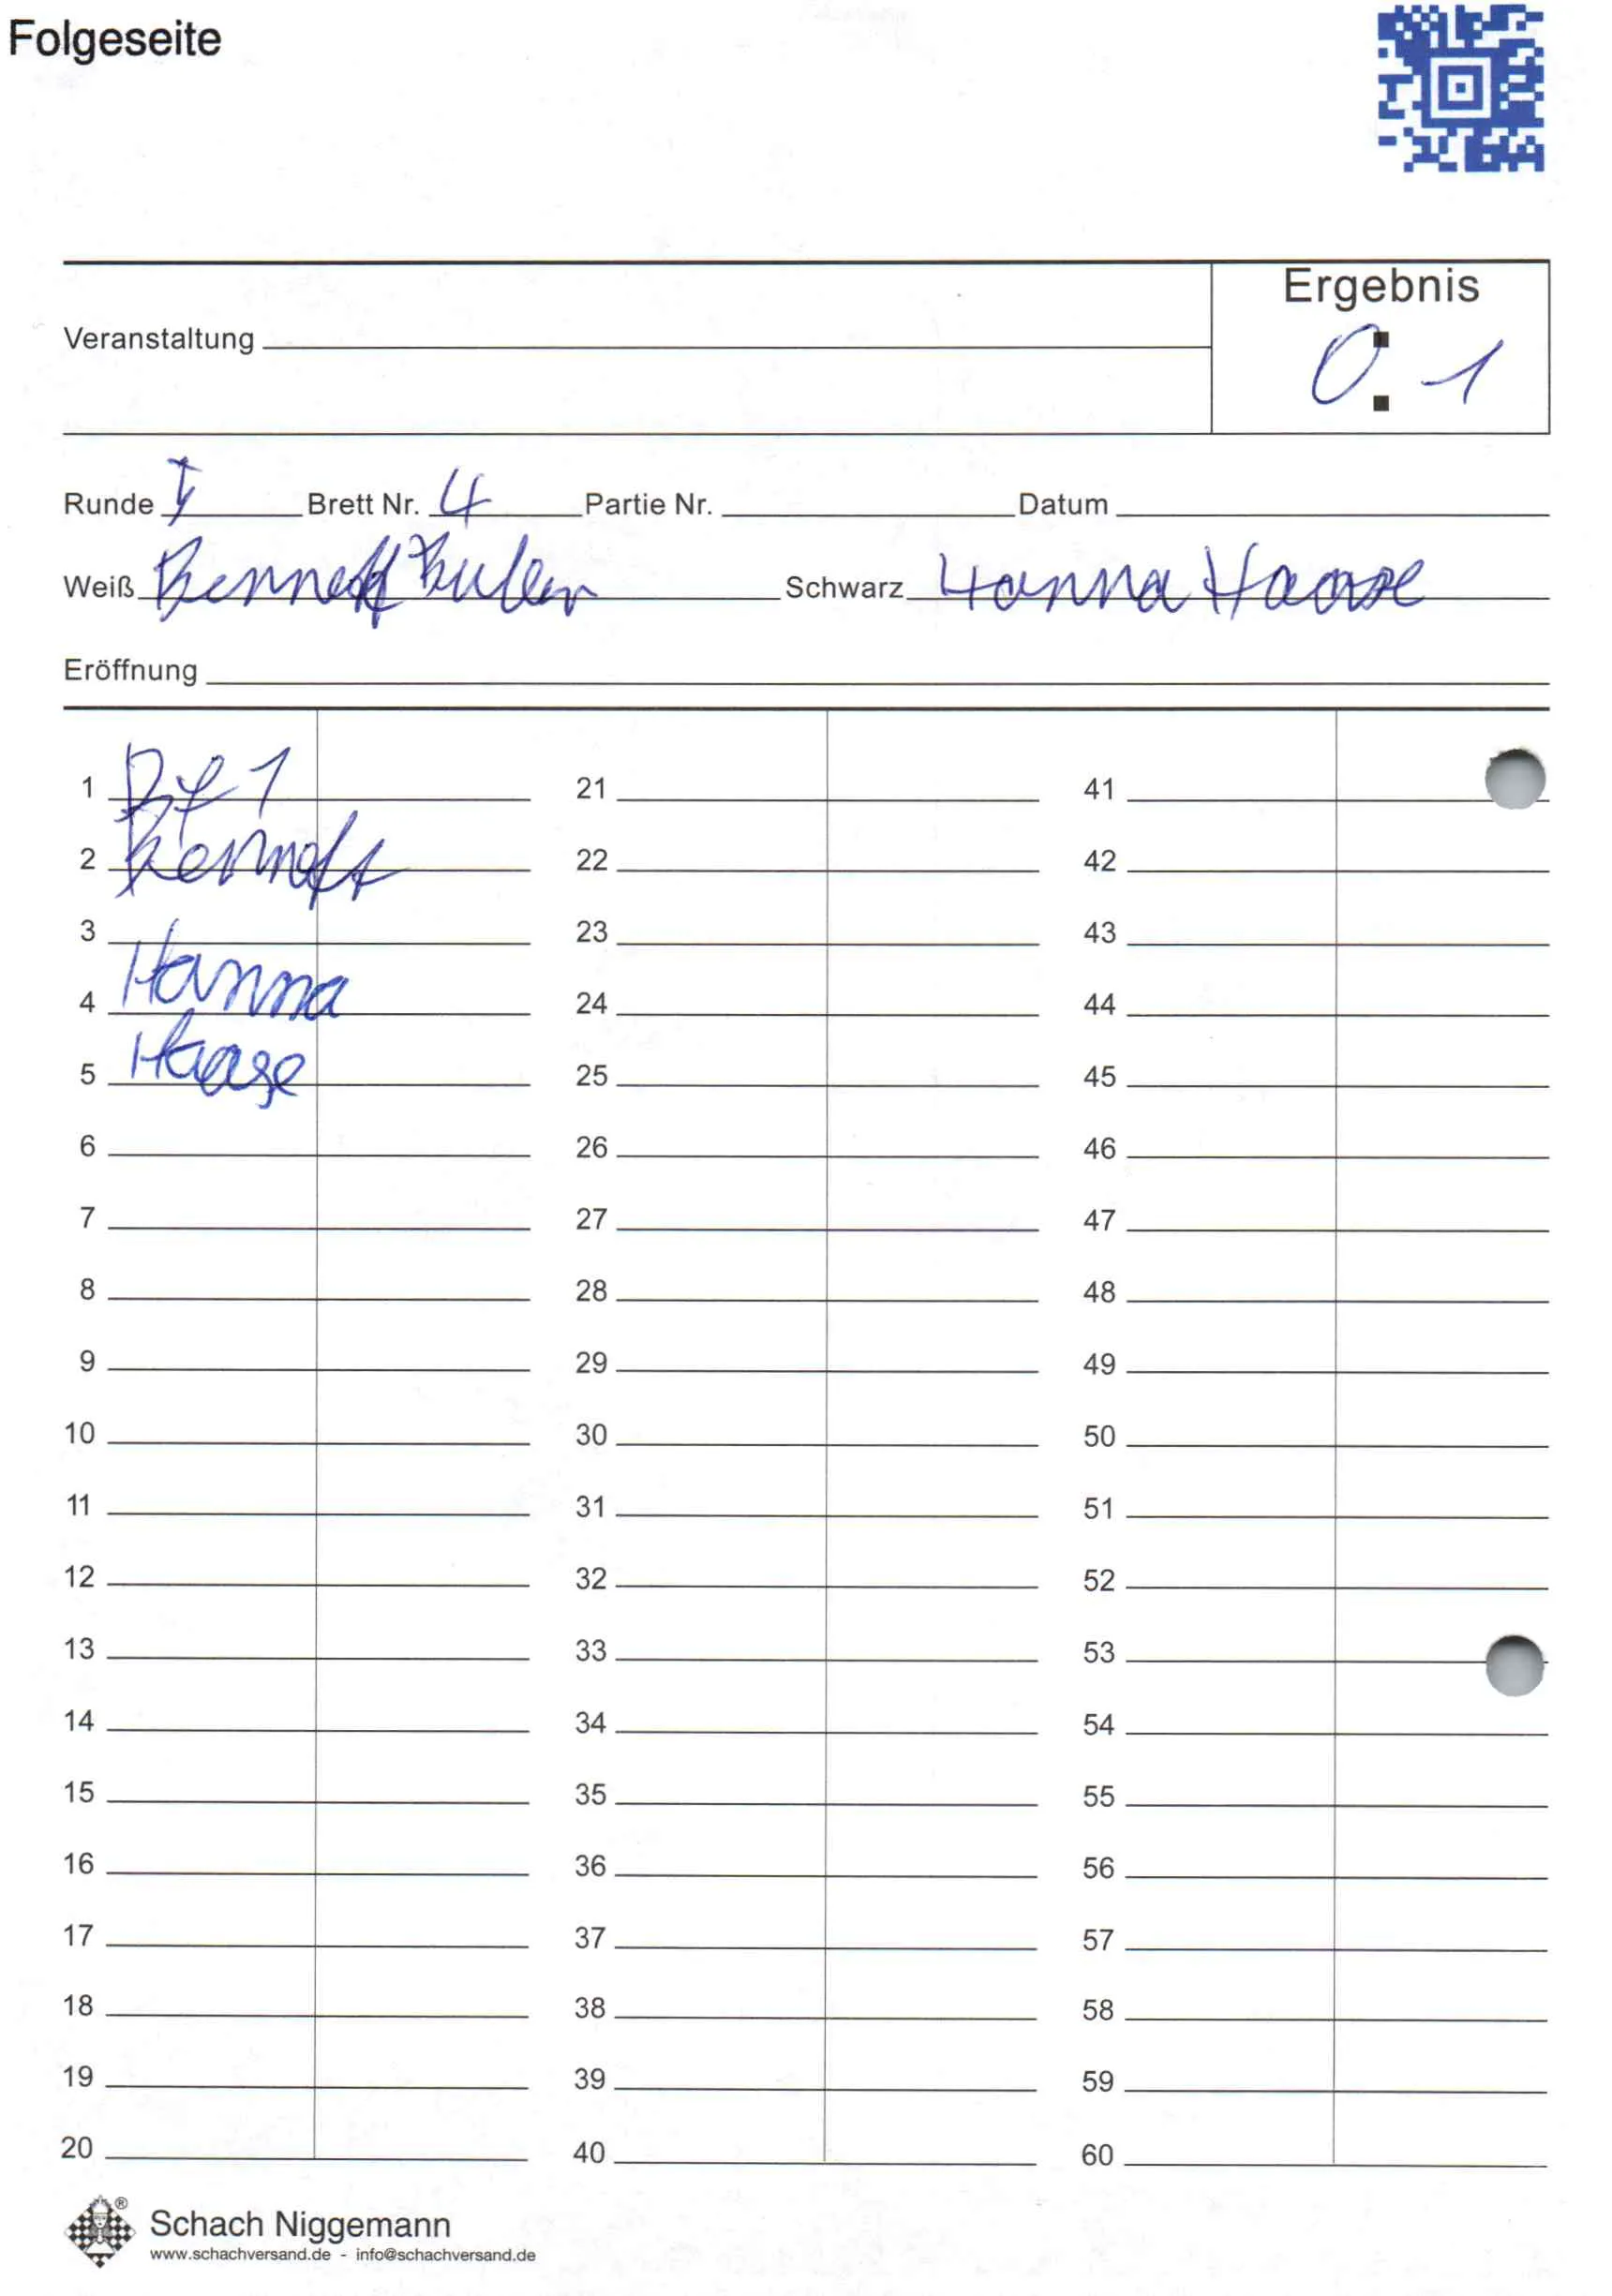 Folgeseite
Ergebnis
Veranstaltung
0:1
Runde Brett Nr. 4 Partie Nr. Datum
Weiß Bennett Schwarz Hanna Haase
Eröffnung
1 21 41
2 Bennett 22 42
3 23 43
4 Hanna 24 44
5 Haase 25 45
6 26 46
7 27 47
8 28 48
9 29 49
10 30 50
11 31 51
12 32 52
13 33 53
14 34 54
15 35 55
16 36 56
17 37 57
18 38 58
19 39 59
20 40 60
® Schach Niggemann
www.schachversand.de - info@schachversand.de